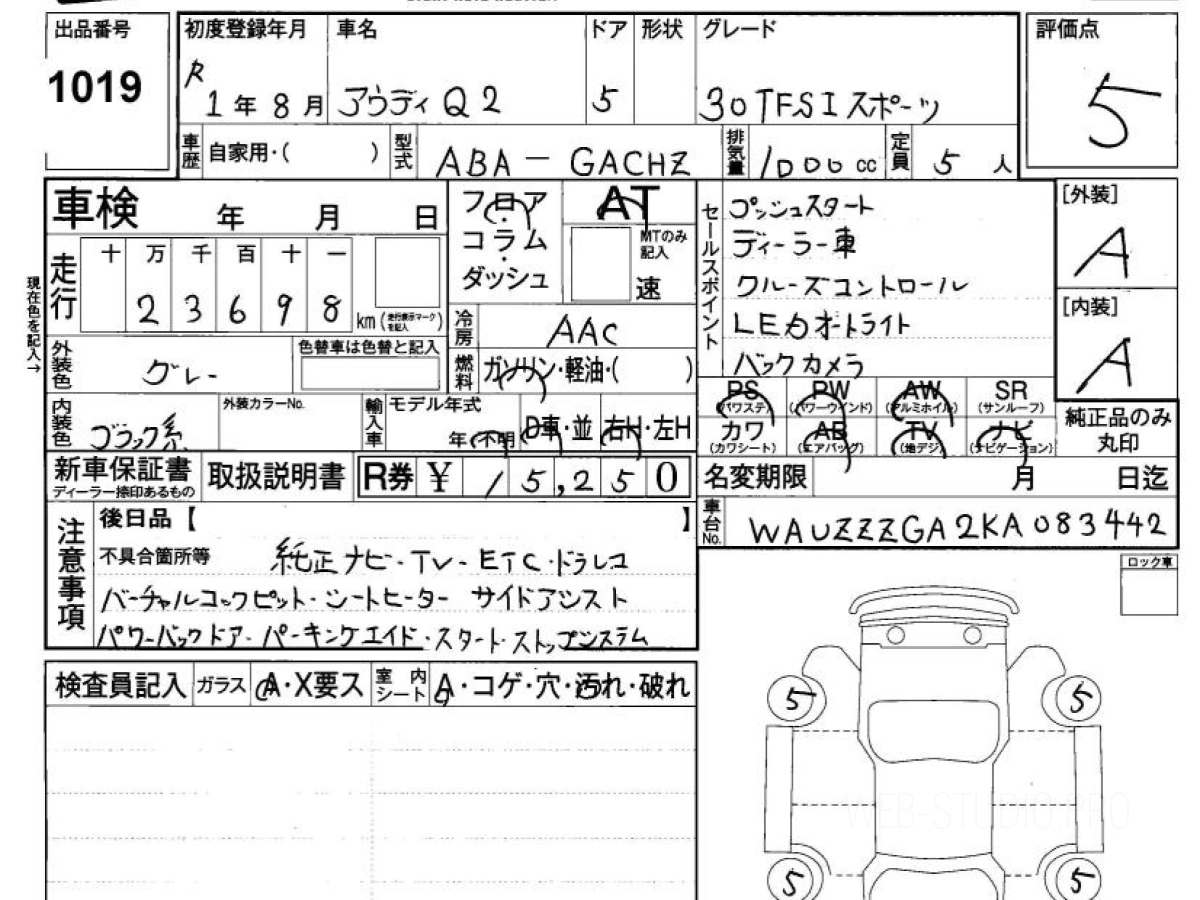 出品番号
1019
初度登録年月
R
1年8月
車名
アウディ Q2
ドア
5
形状
グレード
30TFSIスポーツ
評価点
5
車歴 自家用・( )
型式 ABA-GACHZ
排気量 1000cc
定員 5人
車検 年 月 日
フロア・コラム・ダッシュ
AT
MTのみ記入
速
セールスポイント
プッシュスタート
ディーラー車
クルーズコントロール
LEDオートライト
バックカメラ
[外装]
A
[内装]
A
現在色を記入→
走行
十 万 千 百 十 一
2 3 6 9 8
km(走行表示マークを記入)
冷房 AAC
燃料 ガソリン・軽油・( )
外装色 グレー
色替車は色替と記入
内装色 ブラック系
外装カラーNo.
輸入車
モデル年式
年(不明)
D車・並
右H・左H
PS(パワステ)
PW(パワーウインド)
AW(アルミホイル)
SR(サンルーフ)
カワ(カワシート)
AB(エアバッグ)
TV(地デジ)
ナビ(ナビゲーション)
純正品のみ丸印
新車保証書
ディーラー捺印あるもの
取扱説明書
R券 ¥ 15,250
名変期限 月 日迄
車台No. WAUZZZGA2KA083442
注意事項
後日品【 】
不具合箇所等 純正ナビ・TV・ETC・ドラレコ
バーチャルコックピット・シートヒーター サイドアシスト
パワーバックドア・パーキングエイド・スタート・ストップシステム
ロック車
検査員記入 ガラス A・X要ス
室内シート A・コゲ・穴・汚れ・破れ
5
5
5
5
WEB-STUDIO.PRO